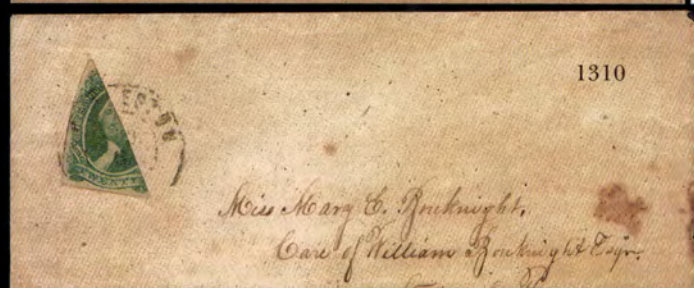 1310
ESTON
Miss Mary C. Bouknight,
Care of William Bouknight Esqr.